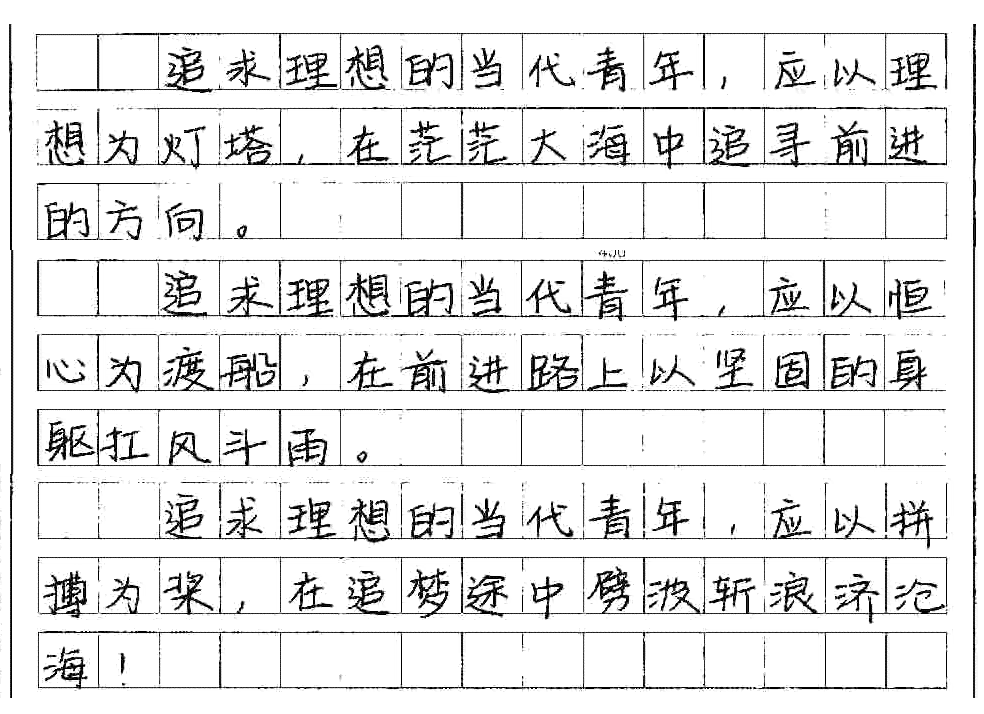 追求理想的当代青年，应以理
想为灯塔，在茫茫大海中追寻前进
的方向。
400
追求理想的当代青年，应以恒
心为渡船，在前进路上以坚固的身
躯扛风斗雨。
追求理想的当代青年，应以拼
搏为桨，在追梦途中劈波斩浪济沧
海！